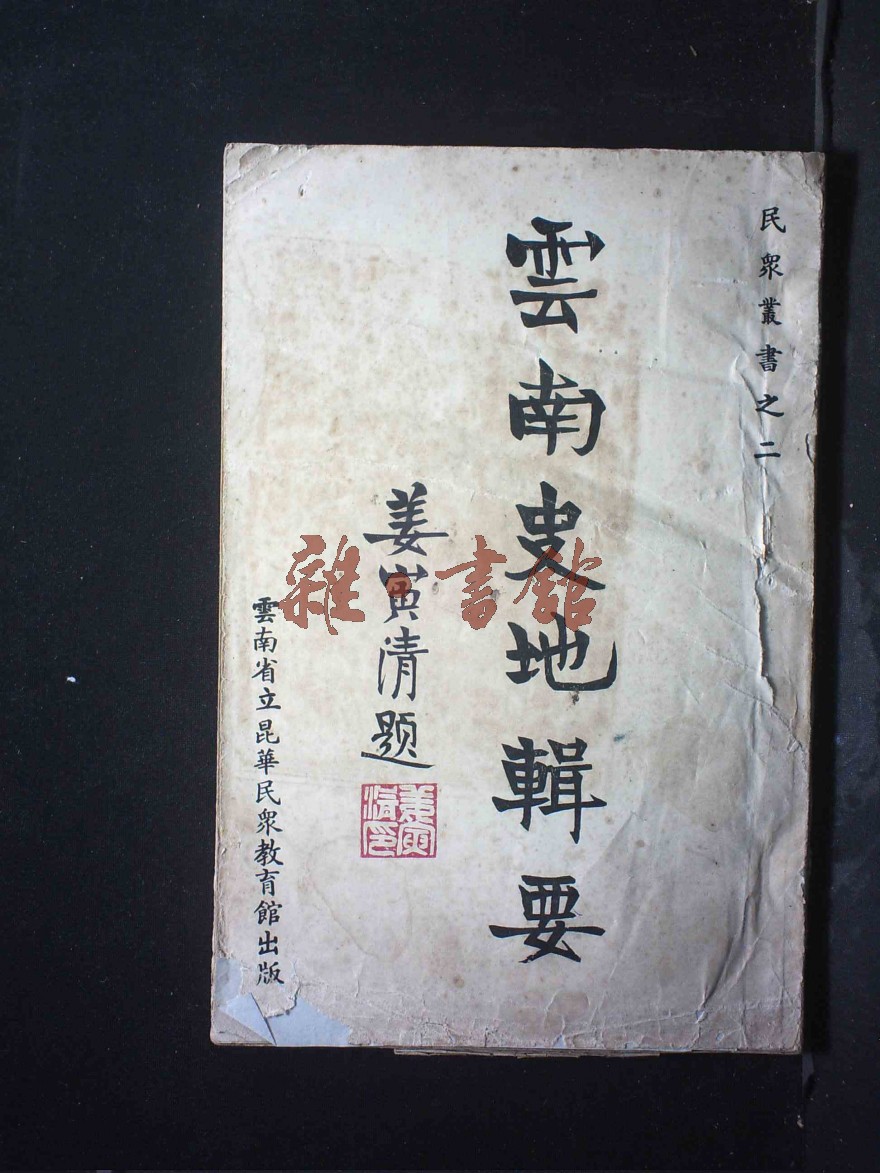 民眾叢書之二
雲南史地輯要
姜寅清題
姜寅清印
雲南省立昆華民眾教育館出版
雜·書館